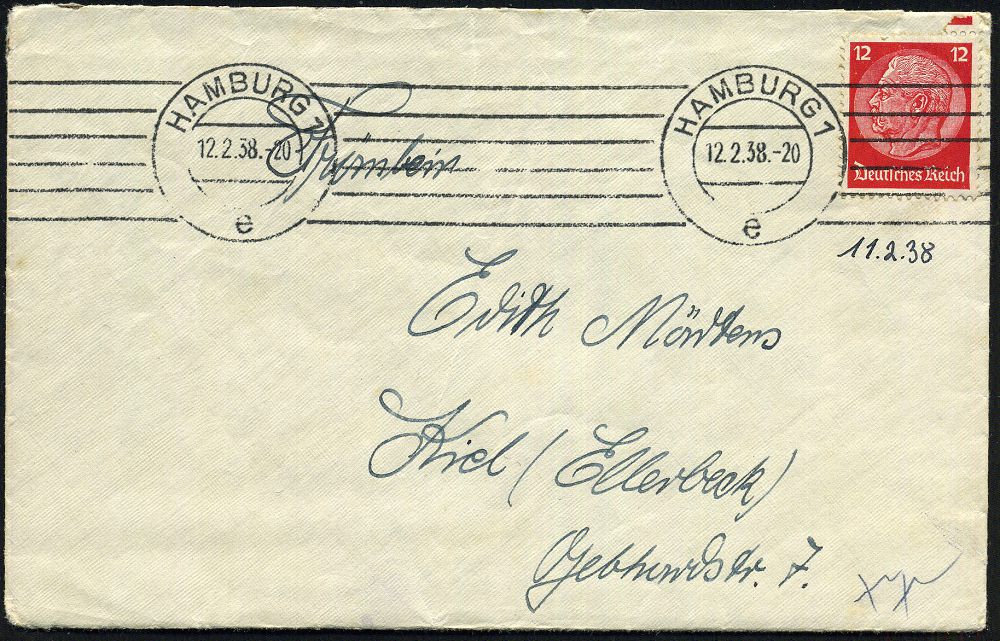 HAMBURG 1
12.2.38.-20
e
HAMBURG 1
12.2.38.-20
e
12 12
Deutsches Reich
11.2.38
Edith Mördens
Kiel (Ellerbeck)
Gebhardstr. 7.